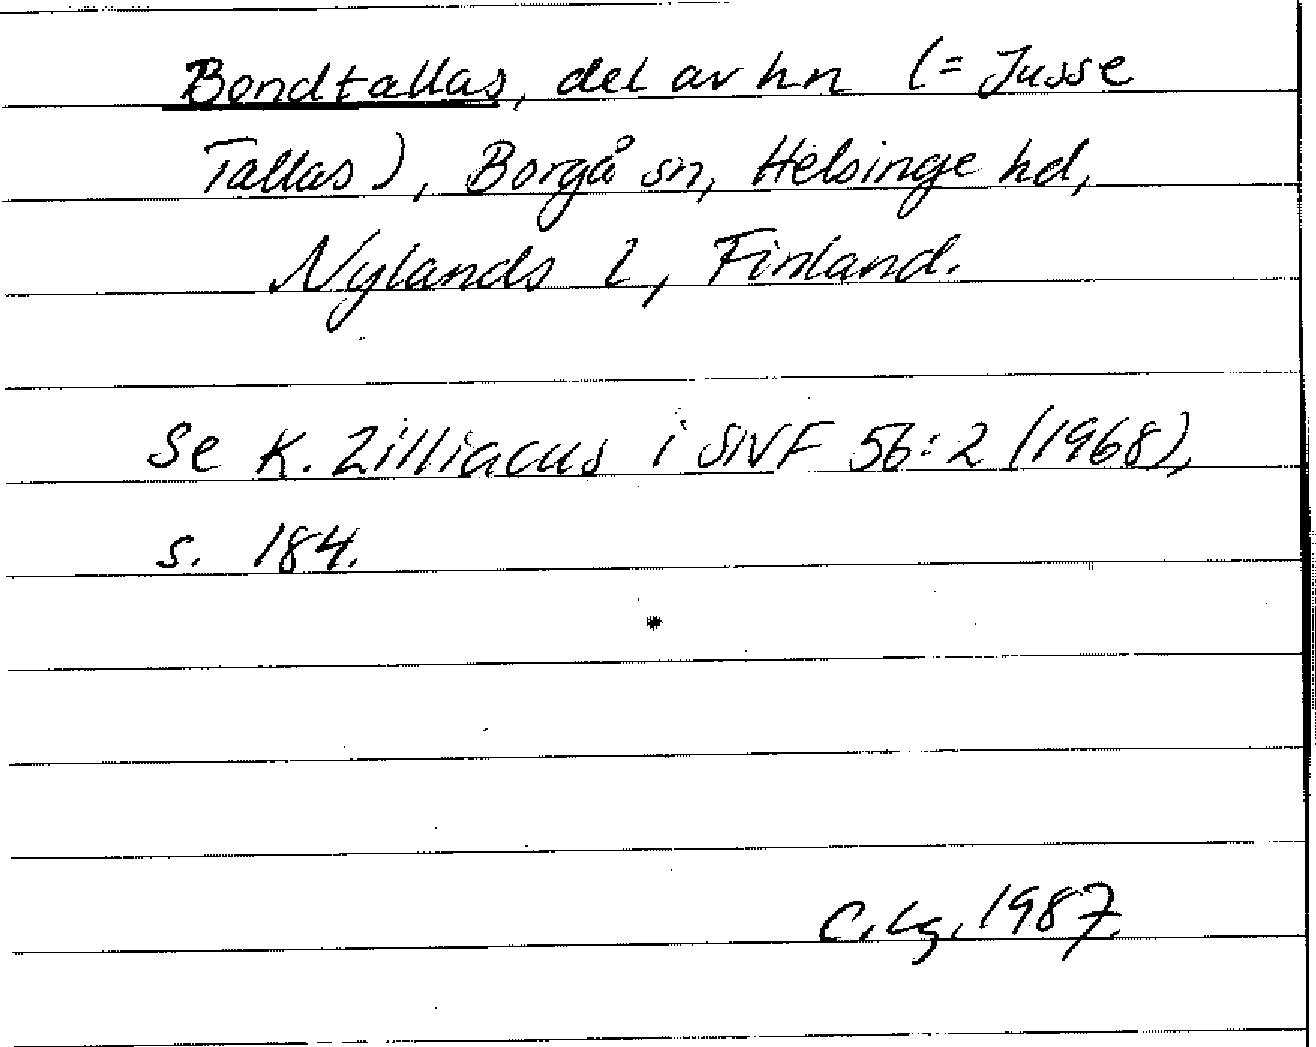 Bondtallas, del av hn (= Jusse
Tallas), Borgå sn, Helsinge hd,
Nylands l, Finland.
Se K. Zilliacus i SNF 56:2 (1968),
s. 184.
C. Lg. 1987.